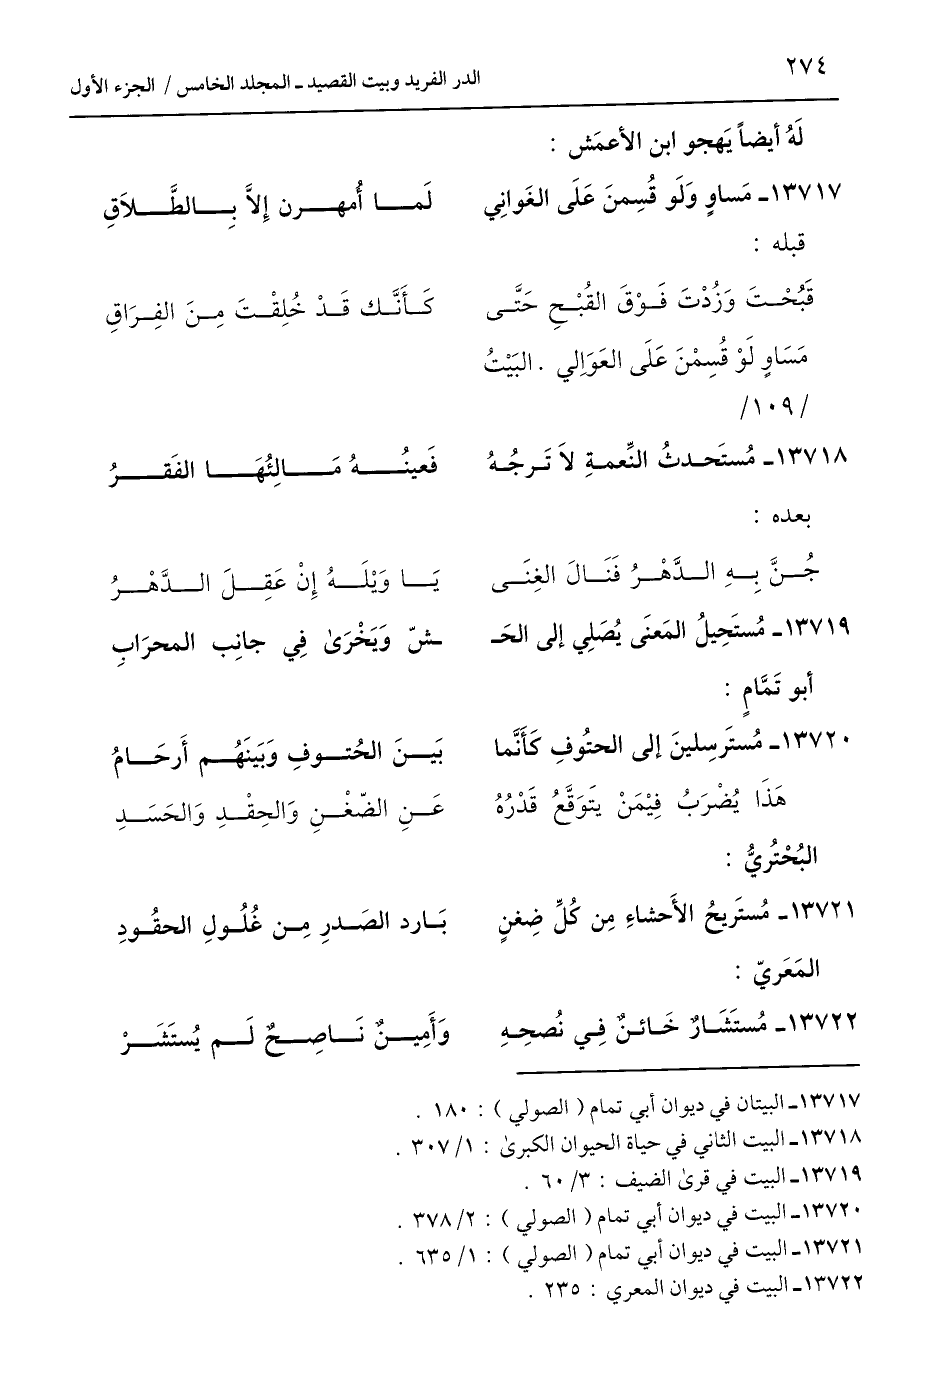 ٢٧٤
الدر الفريد وبيت القصيد ـ المجلد الخامس / الجزء الأول
لَهُ أيضاً يَهجو ابن الأعمَش :
١٣٧١٧ـ مَساوٍ وَلَو قُسِمنَ عَلَى الغَواني لَمـا أُمهـرن إلاَّ بِـالطَّـلاَقِ
قبله :
قَبُحْـتَ وَزُدْتَ فَـوْقَ القُبْـحِ حَتَّـى كَـأَنَّـك قَـدْ خُلِقْـتَ مِـنَ الفِـرَاقِ
مَسَاوٍ لَوْ قُسِمْنَ عَلَى العَوَالِي . البَيْتُ
/١٠٩/
١٣٧١٨ـ مُستَحـدثُ النِّعمـةِ لاَ تَـرجُـهُ فَعينُـهُ مَـالِئُهَـا الفَقـرُ
بعده :
جُـنَّ بِـهِ الـدَّهْـرُ فَنَـالَ الغِنَـى يَـا وَيْلَـهُ إنْ عَقِـلَ الـدَّهْـرُ
١٣٧١٩ـ مُستَحِيلُ المَعنَى يُصَلِي إلى الحَـ ـشّ وَيَخْرَىٰ فِي جانِب المحرَابِ
أبو تَمَّامٍ :
١٣٧٢٠ـ مُستَرسِلينَ إلى الحتُوفِ كَأَنَّما بَيـنَ الحُتـوفِ وَبَينَهُـم أَرحَـامُ
هَذَا يُضْرَبُ فِيْمَنْ يَتَوَقَّعُ قَدْرُهُ عَـنِ الضّغْـنِ وَالحِقْـدِ وَالحَسَـدِ
البُحْتُرِيُّ :
١٣٧٢١ـ مُستَريحُ الأَحشاءِ مِن كُلِّ ضِغنٍ بَـارد الصَـدرِ مِـن غُلُـولِ الحقُـودِ
المَعَريّ :
١٣٧٢٢ـ مُستَشَـارٌ خَـائـنٌ فِـي نُصحِـهِ وَأَمِيـنٌ نَـاصِـحٌ لَـم يُستَشَـرْ
١٣٧١٧ـ البيتان في ديوان أبي تمام ( الصولي ) : ١٨٠ .
١٣٧١٨ـ البيت الثاني في حياة الحيوان الكبرىٰ : ١/ ٣٠٧ .
١٣٧١٩ـ البيت في قرىٰ الضيف : ٣/ ٦٠ .
١٣٧٢٠ـ البيت في ديوان أبي تمام ( الصولي ) : ٢/ ٣٧٨ .
١٣٧٢١ـ البيت في ديوان أبي تمام ( الصولي ) : ١/ ٦٣٥ .
١٣٧٢٢ـ البيت في ديوان المعري : ٢٣٥ .